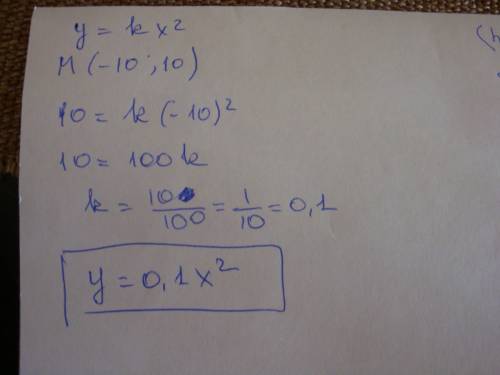 y = kx²
M (-10 ; 10)
10 = k (-10)²
10 = 100k
k = 10/100 = 1/10 = 0,1
y = 0,1x²